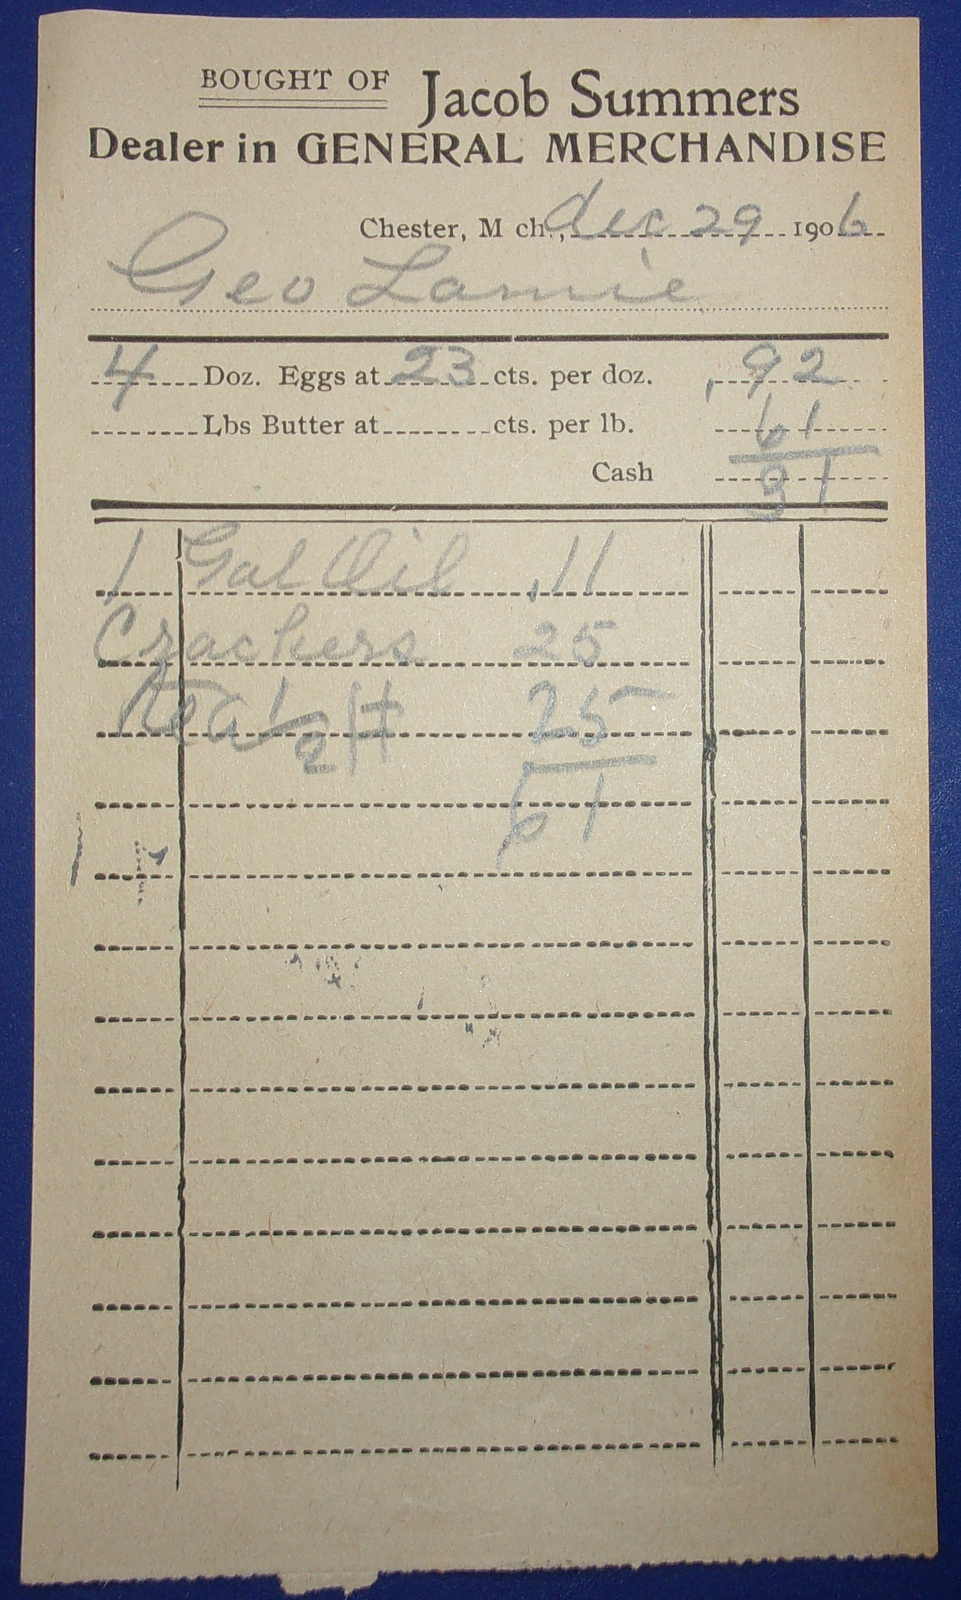 BOUGHT OF Jacob Summers
Dealer in GENERAL MERCHANDISE
Chester, M ch., Dec 29 1906
Geo Lamie
4 Doz. Eggs at 23 cts. per doz. .92
Lbs Butter at cts. per lb. 61
Cash 31
1 Gal Oil .11
Crackers 25
Tea 1/2 # 25
61